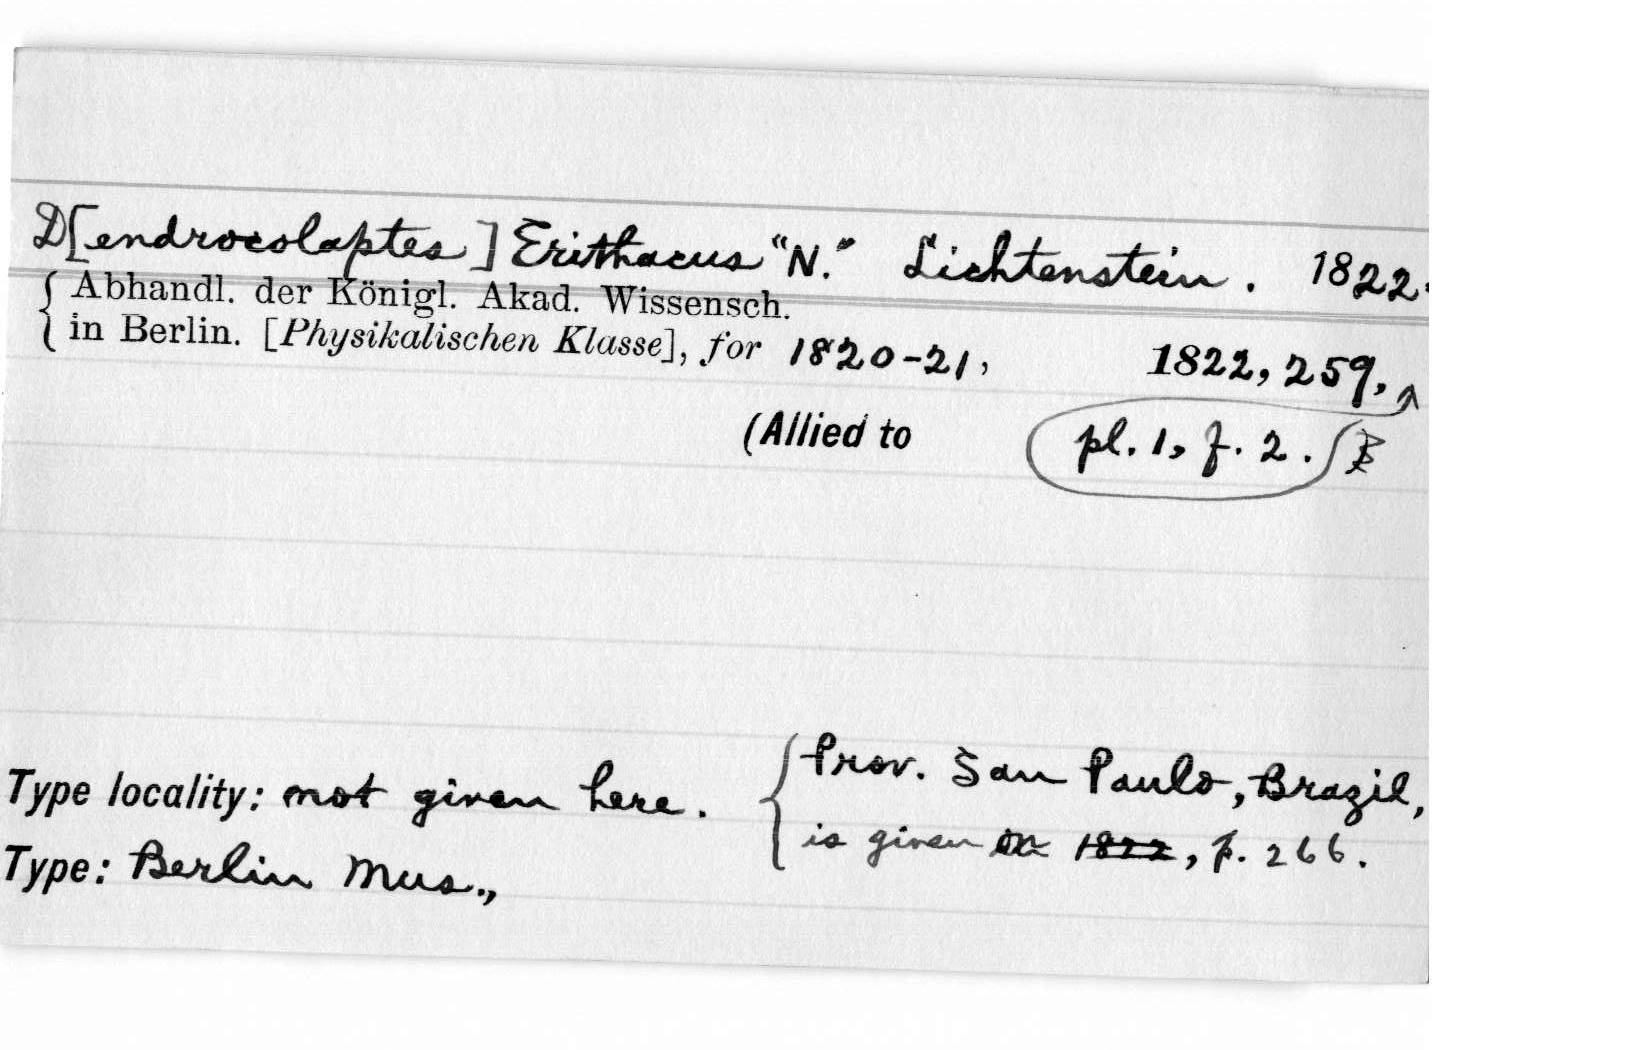 D[endrocolaptes] Erithacus "N." Lichtenstein. 1822.
Abhandl. der Königl. Akad. Wissensch.
in Berlin. [Physikalischen Klasse], for 1820-21, 1822, 259,
(Allied to pl. 1, f. 2.
Type locality: not given here. Prov. San Paulo, Brazil,
is given in 1822, p. 266.
Type: Berlin Mus.,